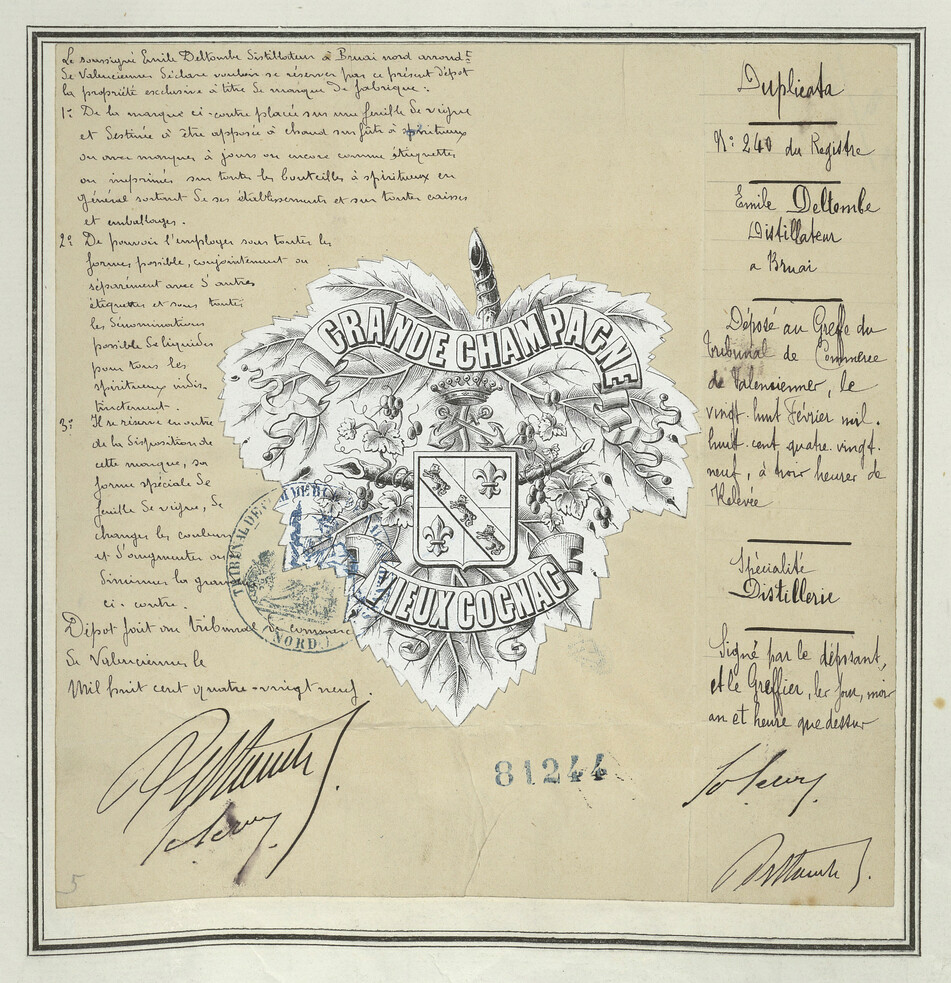 Le soussigné Emile Deltombe Distillateur à Bruai nord arrond.t
De Valenciennes Déclare vouloir se réserver par ce présent dépot
la propriété exclusive à titre De marque de fabrique :
1º De la marque ci-contre placée sur une feuille De vigne
et Destinée à être apposée à chaud sur fûts à spiritueux
ou avec marques à jours ou encore comme étiquettes
ou imprimés sur toutes les bouteilles à spiritueux en
général sortant De ses établissements et sur toutes caisses
et emballages.
2º De pouvoir l'employer sous toutes les
formes possible, conjointement ou
séparément avec D'autres
étiquettes et sous toutes
les Dénominations
possible De liquides
pour tous les
spiritueux indis-
tinctement.
3º Il se réserve en outre
de la Disposition de
cette marque, sa
forme spéciale De
feuille De vigne, De
changer les couleurs
et D'augmenter ou
Diminuer la
ci-contre.
Dépot fait au tribunal De commerce
De Valenciennes le
Mil huit cent quatre-vingt neuf.
GRANDE CHAMPAGNE
VIEUX COGNAC
TRIBUNAL DE COMMERCE DE
NORD
81244
5
Duplicata
Nº 240 du Registre
Emile Deltombe
Distillateur
a Bruai
Déposé au Greffe du
Tribunal de Commerce
de Valenciennes, le
vingt-huit Février mil-
huit-cent quatre-vingt-
neuf, à trois heures de
Relevée
Spécialité
Distillerie
Signé par le déposant,
et le Greffier, les jour, mois
an et heure que dessus